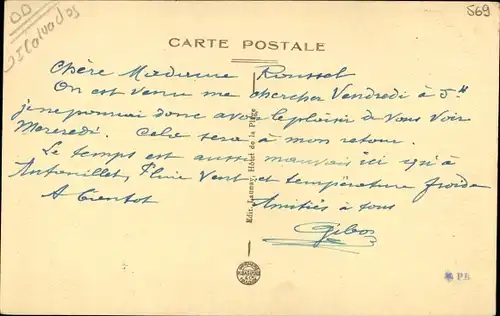 569
DD
Calvados
CARTE POSTALE
Chère Madame Roussel
On est venu me chercher Vendredi à 5H
je ne pourrai donc avoir le plaisir de Vous Voir
Mercredi. Cela sera à mon retour.
Le temps est aussi mauvais ici qu'à
Pluie Vent et température froide
A bientot Amitiés à tous
Edit. Launay, Hôtel de la Plage
PB